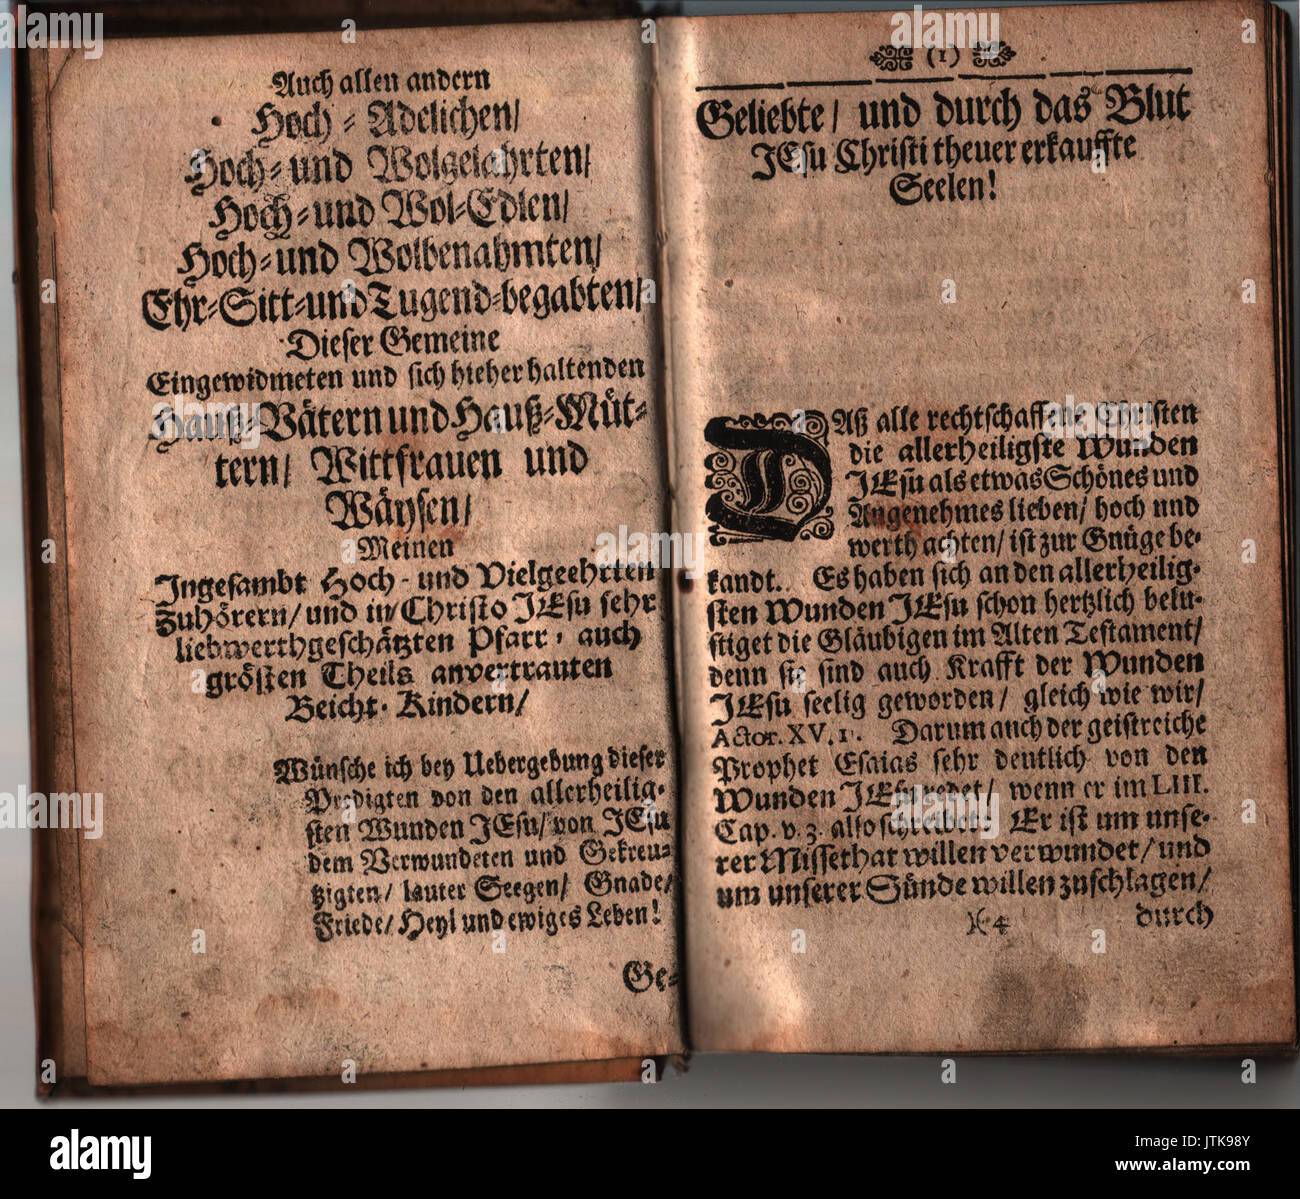 Auch allen andern
Hoch-Adelichen/
Hoch-und Wolgelahrten/
Hoch-und Wol-Edlen/
Hoch-und Wolbenahmten/
Ehr-Sitt-und Tugend-begabten/
Dieser Gemeine
Eingewidmeten und sich hieher haltenden
Hauß-Vätern und Hauß-Müt-
tern/ Wittfrauen und
Wäysen/
Meinen
Ingesambt Hoch-und Vielgeehrten
Zuhörern/ und in Christo JEsu sehr
liebwerthgeschätzten Pfarr- auch
grösten Theils anvertrauten
Beicht-Kindern/
Wünsche ich bey Uebergebung dieser
Predigten von den allerheilig-
sten Wunden JEsu/ von JEsu
dem Verwundeten und Gekreu-
tzigten/ lauter Seegen/ Gnade/
Friede/ Heyl und ewiges Leben!
Ge-
(1)
Geliebte/ und durch das Blut
JEsu Christi theuer erkauffte
Seelen!
DAß alle rechtschaffene Christen
die allerheiligste Wunden
JEsu als etwas Schönes und
Angenehmes lieben/ hoch und
werth achten/ ist zur Gnüge be-
kandt. Es haben sich an den allerheilig-
sten Wunden JEsu schon hertzlich belu-
stiget die Gläubigen im Alten Testament/
denn sie sind auch Krafft der Wunden
JEsu seelig geworden/ gleich wie wir/
Actor. XV. 11. Darum auch der geistreiche
Prophet Esaias sehr deutlich von den
Wunden JEsu redet/ wenn er im LIII.
Cap. v. 5. also schreibet: Er ist um unse-
rer Missethat willen verwundet/ und
um unserer Sünde willen zuschlagen/
)( 4 durch
alamy
Image ID: JTK98Y
www.alamy.com